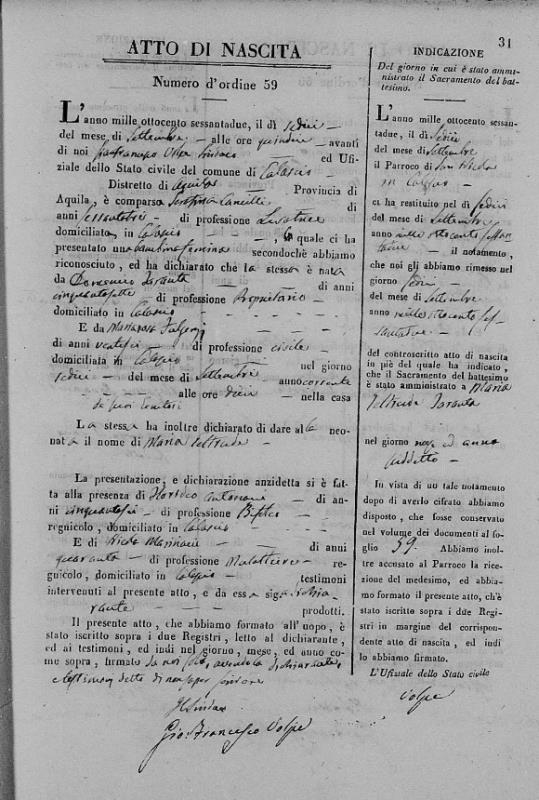 31
ATTO DI NASCITA
Numero d'ordine 59
L'anno mille ottocento sessantadue, il dì sedici
del mese di Settembre - alle ore quindici - avanti
di noi Gianfrancesco Volpe Sindaco ed Ufi-
ziale dello Stato civile del comune di Calascio
Distretto di Aquila Provincia di
Aquila, è comparsa Serafina di
anni sessantotto - di professione Levatrice
domiciliata, in Calascio - , la quale ci ha
presentato una bambina femina secondochè abbiamo
riconosciuto, ed ha dichiarato che la stessa è nata
da Domenico Taranta - di anni
cinquantasette di professione Proprietario -
domiciliato in Calascio
E da Mariarosa
di anni di professione civile -
domiciliata in Calascio nel giorno
sedici - del mese di Settembre - anno corrente
alle ore dieci - nella casa
di
La stessa ha inoltre dichiarato di dare alla neo-
nata il nome di Maria Geltrude -
La presentazione, e dichiarazione anzidetta si è fat-
ta alla presenza di - di an-
ni di professione
regnicolo, domiciliato in Calascio
E di Nicola di anni
quaranta - di professione Mulattiere - re-
gnicolo, domiciliato in Calascio testimoni
intervenuti al presente atto, e da essa sig. dichia-
rante prodotti.
Il presente atto, che abbiamo formato all'uopo, è
stato iscritto sopra i due Registri, letto al dichiarante,
ed ai testimoni, ed indi nel giorno, mese, ed anno co-
me sopra, firmato da noi avendo la dichiarante
e testimoni detto di non saper scrivere
Il Sindaco
Gio: Francesco Volpe
INDICAZIONE
Del giorno in cui è stato ammi-
nistrato il Sacramento del bat-
tesimo.
L'anno mille ottocento sessan-
tadue, il dì sedici
del mese di Settembre
il Parroco di San Nicola
in Calascio
ci ha restituito nel dì sedici
del mese di Settembre
anno mille ottocento sessan-
tadue - il notamento,
che noi gli abbiamo rimesso nel
giorno sedici
del mese di Settembre
anno mille ottocento ses-
santadue -
del controscritto atto di nascita
in piè del quale ha indicato,
che il Sacramento del battesimo
è stato amministrato a Maria
Geltrude Taranta
nel giorno mese ed anno
suddetto -
In vista di un tale notamento
dopo di averlo cifrato abbiamo
disposto, che fosse conservato
nel volume dei documenti al fo-
glio 59. Abbiamo inol-
tre accusato al Parroco la rice-
zione del medesimo, ed abbia-
mo formato il presente atto, ch'è
stato iscritto sopra i due Regi-
stri in margine del corrispon-
dente atto di nascita, ed indi
lo abbiamo firmato.
L'Ufiziale dello Stato civile
Volpe